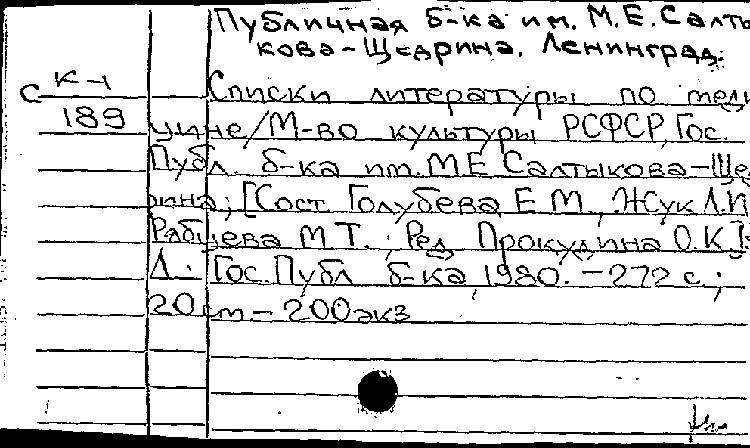 Публичная б-ка им. М.Е.Салты
кова-Щедрина. Ленинград.
С К-1
189
Списки литературы по меди
цине/М-во культуры РСФСР, Гос.
Публ. б-ка им. М Е Салтыкова-Щед
рина; [Сост. Голубева Е М., Жук Л.И
Рябцева М Т. ; Ред. Прокудина О.К.].
Л. Гос. Публ б-ка, 1980. - 272 с.;
20 см - 200 экз